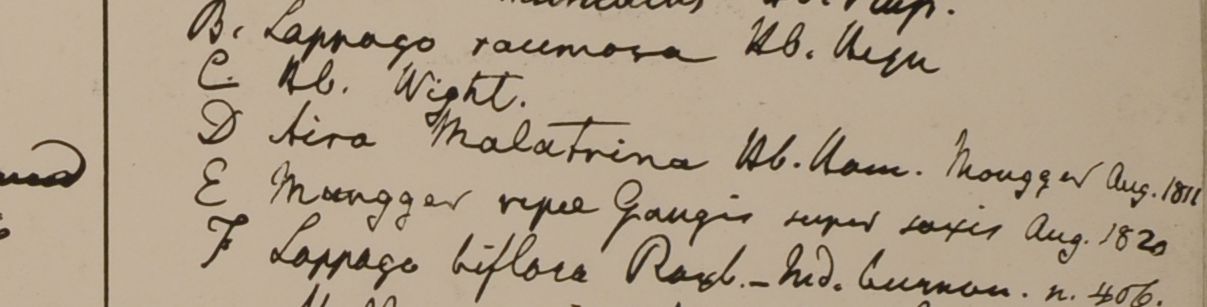 Hb.
B. Lappago racemosa Hb. Heyn
C. Hb. Wight.
D Aira Malatrina Hb. Ham. Mongger Aug. 1811
E Mungger ripae Gangis super saxis Aug. 1820
F Lappago biflora Roxb. - Ind. n. 406.